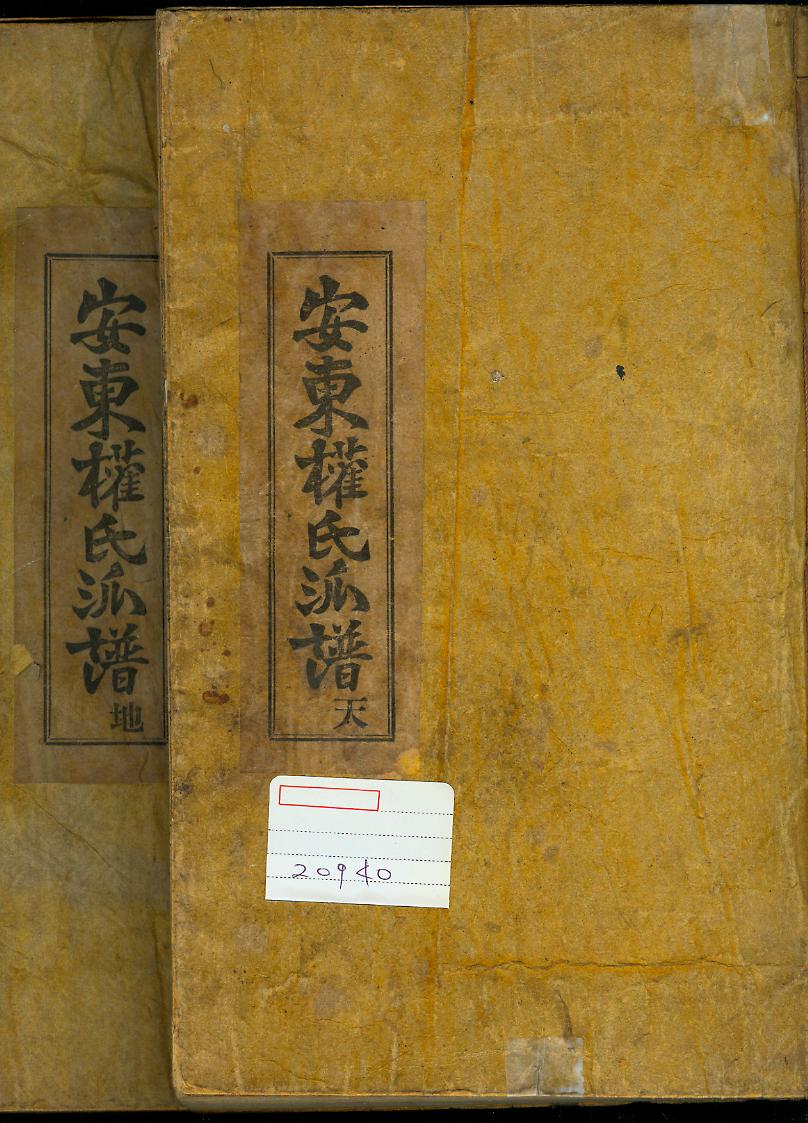 安東權氏派譜 天
安東權氏派譜 地
20940